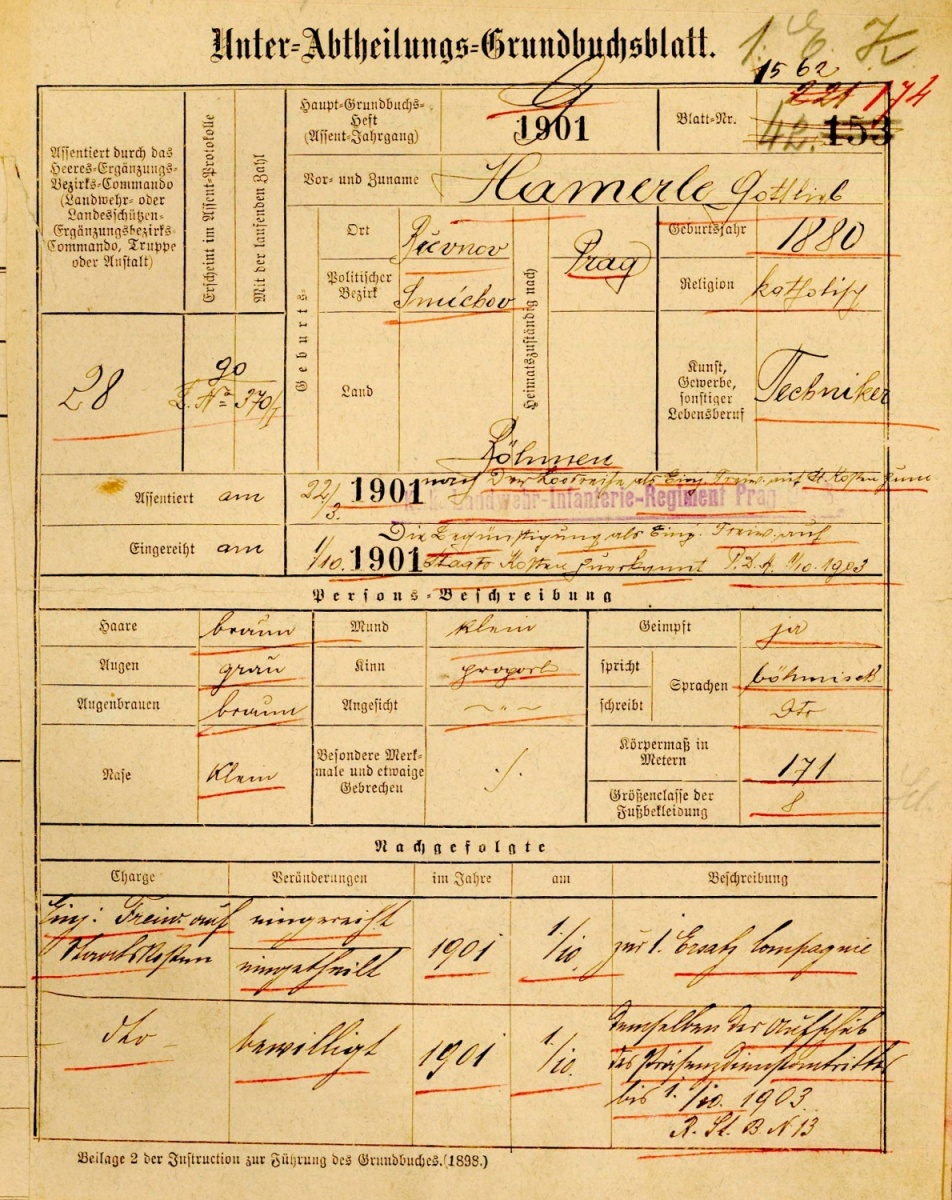 Unter-Abtheilungs-Grundbuchsblatt.
1. E. K
15 62
221 174
Haupt-Grundbuchs-
Heft
(Assent-Jahrgang)
1901
Blatt-Nr.
42. 153
Assentiert durch das
Heeres-Ergänzungs-
Bezirks-Commando
(Landwehr- oder
Landesschützen-
Ergänzungsbezirks-
Commando, Truppe
oder Anstalt)
Erscheint im Assent-Protokolle
Mit der laufenden Zahl
Vor- und Zuname
Hamerle Gottlieb
Geburts-
Ort
Břevnov
Politischer
Bezirk
Smíchov
Land
Heimatszuständig nach
Prag
Böhmen
Geburtsjahr
1880
Religion
katholisch
Kunst,
Gewerbe,
sonstiger
Lebensberuf
Techniker
28
90
370/I
Assentiert am 22/3. 1901 nach der Losreihe als Einj. Freiw. auf
Landwehr-Infanterie-Regiment Prag
Eingereiht am 1/10. 1901
Die Begünstigung als Einj. Freiw. auf
Staats Kosten zuerkannt P. D. A. 1/10. 1903
Persons-Beschreibung
Haare braun Mund klein Geimpft ja
Augen grau Kinn proport spricht Sprachen böhmisch
Augenbrauen braun Angesicht -"- schreibt dto
Nase klein
Besondere Merk-
male und etwaige
Gebrechen
./.
Körpermaß in
Metern
171
Größenclasse der
Fußbekleidung
8
Nachgefolgte
Charge Veränderungen im Jahre am Beschreibung
Einj: Freiw. auf
Staatskosten
eingereiht
eingetheilt
1901 1/10. zur 1. Ersatz Compagnie
dto bewilligt 1901 1/10.
demselben der Aufschub
des Präsenzdienstantrittes
bis 1./10. 1903.
R. St. B N 13
Beilage 2 der Instruction zur Führung des Grundbuches. (1898.)